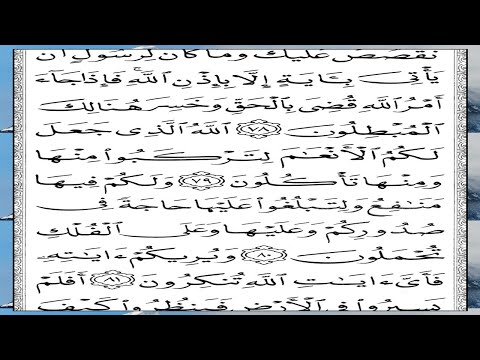 نَقْصُصْ عَلَيْكَ وَمَا كَانَ لِرَسُولٍ أَن
يَأْتِيَ بِـَٔايَةٍ إِلَّا بِإِذْنِ ٱللَّهِ ۚ فَإِذَا جَآءَ
أَمْرُ ٱللَّهِ قُضِيَ بِٱلْحَقِّ وَخَسِرَ هُنَالِكَ
ٱلْمُبْطِلُونَ ٧٨ ٱللَّهُ ٱلَّذِى جَعَلَ
لَكُمُ ٱلْأَنْعَٰمَ لِتَرْكَبُوا۟ مِنْهَا
وَمِنْهَا تَأْكُلُونَ ٧٩ وَلَكُمْ فِيهَا
مَنَٰفِعُ وَلِتَبْلُغُوا۟ عَلَيْهَا حَاجَةً فِى
صُدُورِكُمْ وَعَلَيْهَا وَعَلَى ٱلْفُلْكِ
تُحْمَلُونَ ٨٠ وَيُرِيكُمْ ءَايَٰتِهِۦ
فَأَىَّ ءَايَٰتِ ٱللَّهِ تُنكِرُونَ ٨١ أَفَلَمْ
يَسِيرُوا۟ فِى ٱلْأَرْضِ فَيَنظُرُوا۟ كَيْفَ